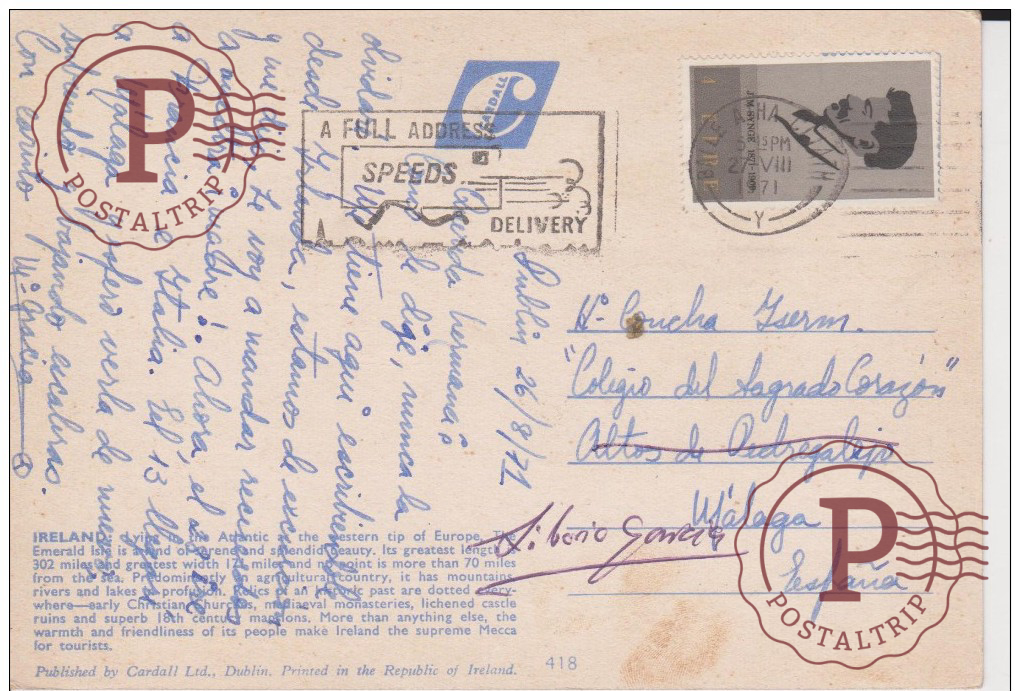 Dublin 26/8/71
Querida hermana:
Como le dije, nunca la
olvido. Me tiene aquí escribiendole
desde Irlanda, estamos de excursión
y me dije: Le voy a mandar recuerdos
a nuestra Madre. Ahora, el
a Francia e Italia. El 13 llego
a Málaga y espero verla de nuevo
subiendo y bajando escaleras.
Con cariño
Mª García
CARDALL
A FULL ADDRESS
SPEEDS
DELIVERY
BAILE ÁTHA
PM
27 VIII
1971
Y
J. M. SYNGE 1871-1909
EIRE
Hª Concha Iserm.
"Colegio del Sagrado Corazón"
Altos de Pedregalejo
Málaga
Liborio García
España
IRELAND: Lying in the Atlantic at the western tip of Europe. The
Emerald Isle is a land of serene and splendid beauty. Its greatest length
302 miles and greatest width 171 miles and no point is more than 70 miles
from the sea. Predominantly an agricultural country, it has mountains,
rivers and lakes in profusion. Relics of an historic past are dotted every-
where—early Christian churches, mediaeval monasteries, lichened castle
ruins and superb 18th century mansions. More than anything else, the
warmth and friendliness of its people make Ireland the supreme Mecca
for tourists.
Published by Cardall Ltd., Dublin. Printed in the Republic of Ireland.
418
P
POSTALTRIP
P
POSTALTRIP